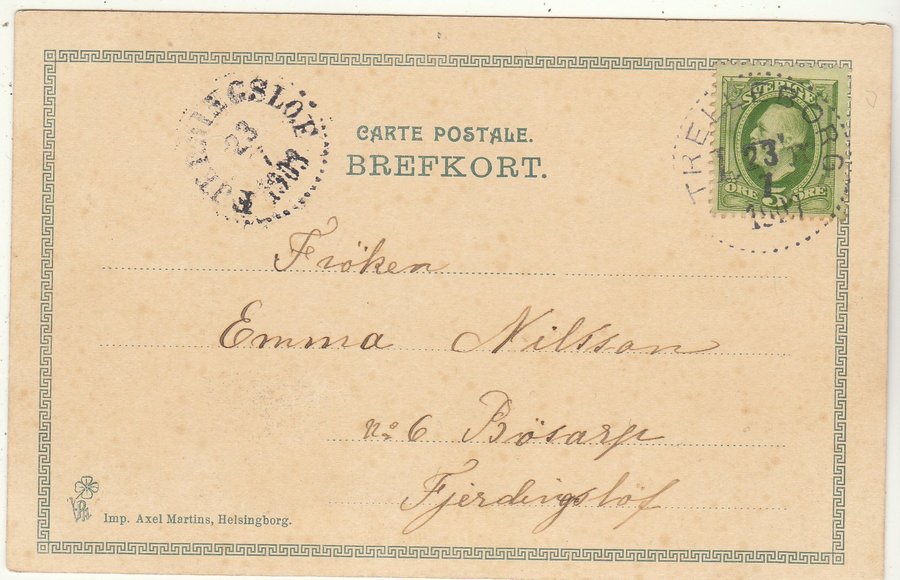 CARTE POSTALE.
BREFKORT.
SVERIGE
ÖRE 5 ÖRE
TRELLEBORG
23
1
FJERDINGSLÖF
23
Fröken
Emma Nilsson
No 6 Bösarp
Fjerdingslöf
Imp. Axel Martins, Helsingborg.